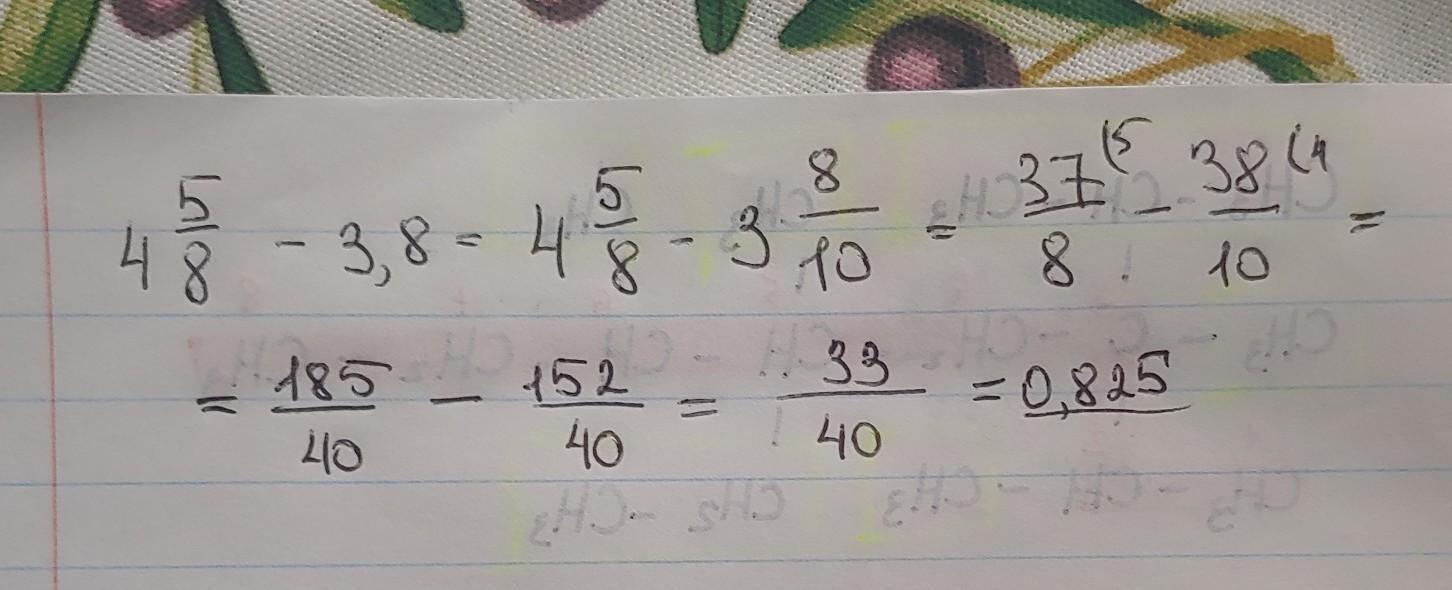 4 5/8 - 3,8 = 4 5/8 - 3 8/10 = 37/8 (5 - 38/10 (4 =
= 185/40 - 152/40 = 33/40 = 0,825